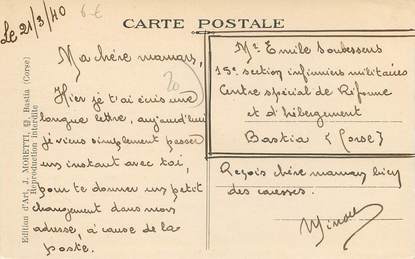 Le 21/3/40
6 €
CARTE POSTALE
Ma chère maman,
20
Hier je t'ai écris une
longue lettre, aujourd'hui
je viens simplement passer
un instant avec toi,
pour te donner un petit
changement dans mon
adresse, à cause de la
poste.
Edition d'Art J. MORETTI, Bastia (Corse)
Reproduction interdite
Mr Emile Soubessens
15e section infirmiers militaires
Centre spécial de Réforme
et d'hébergement
Bastia (Corse)
Reçois chère maman bien
des caresses.